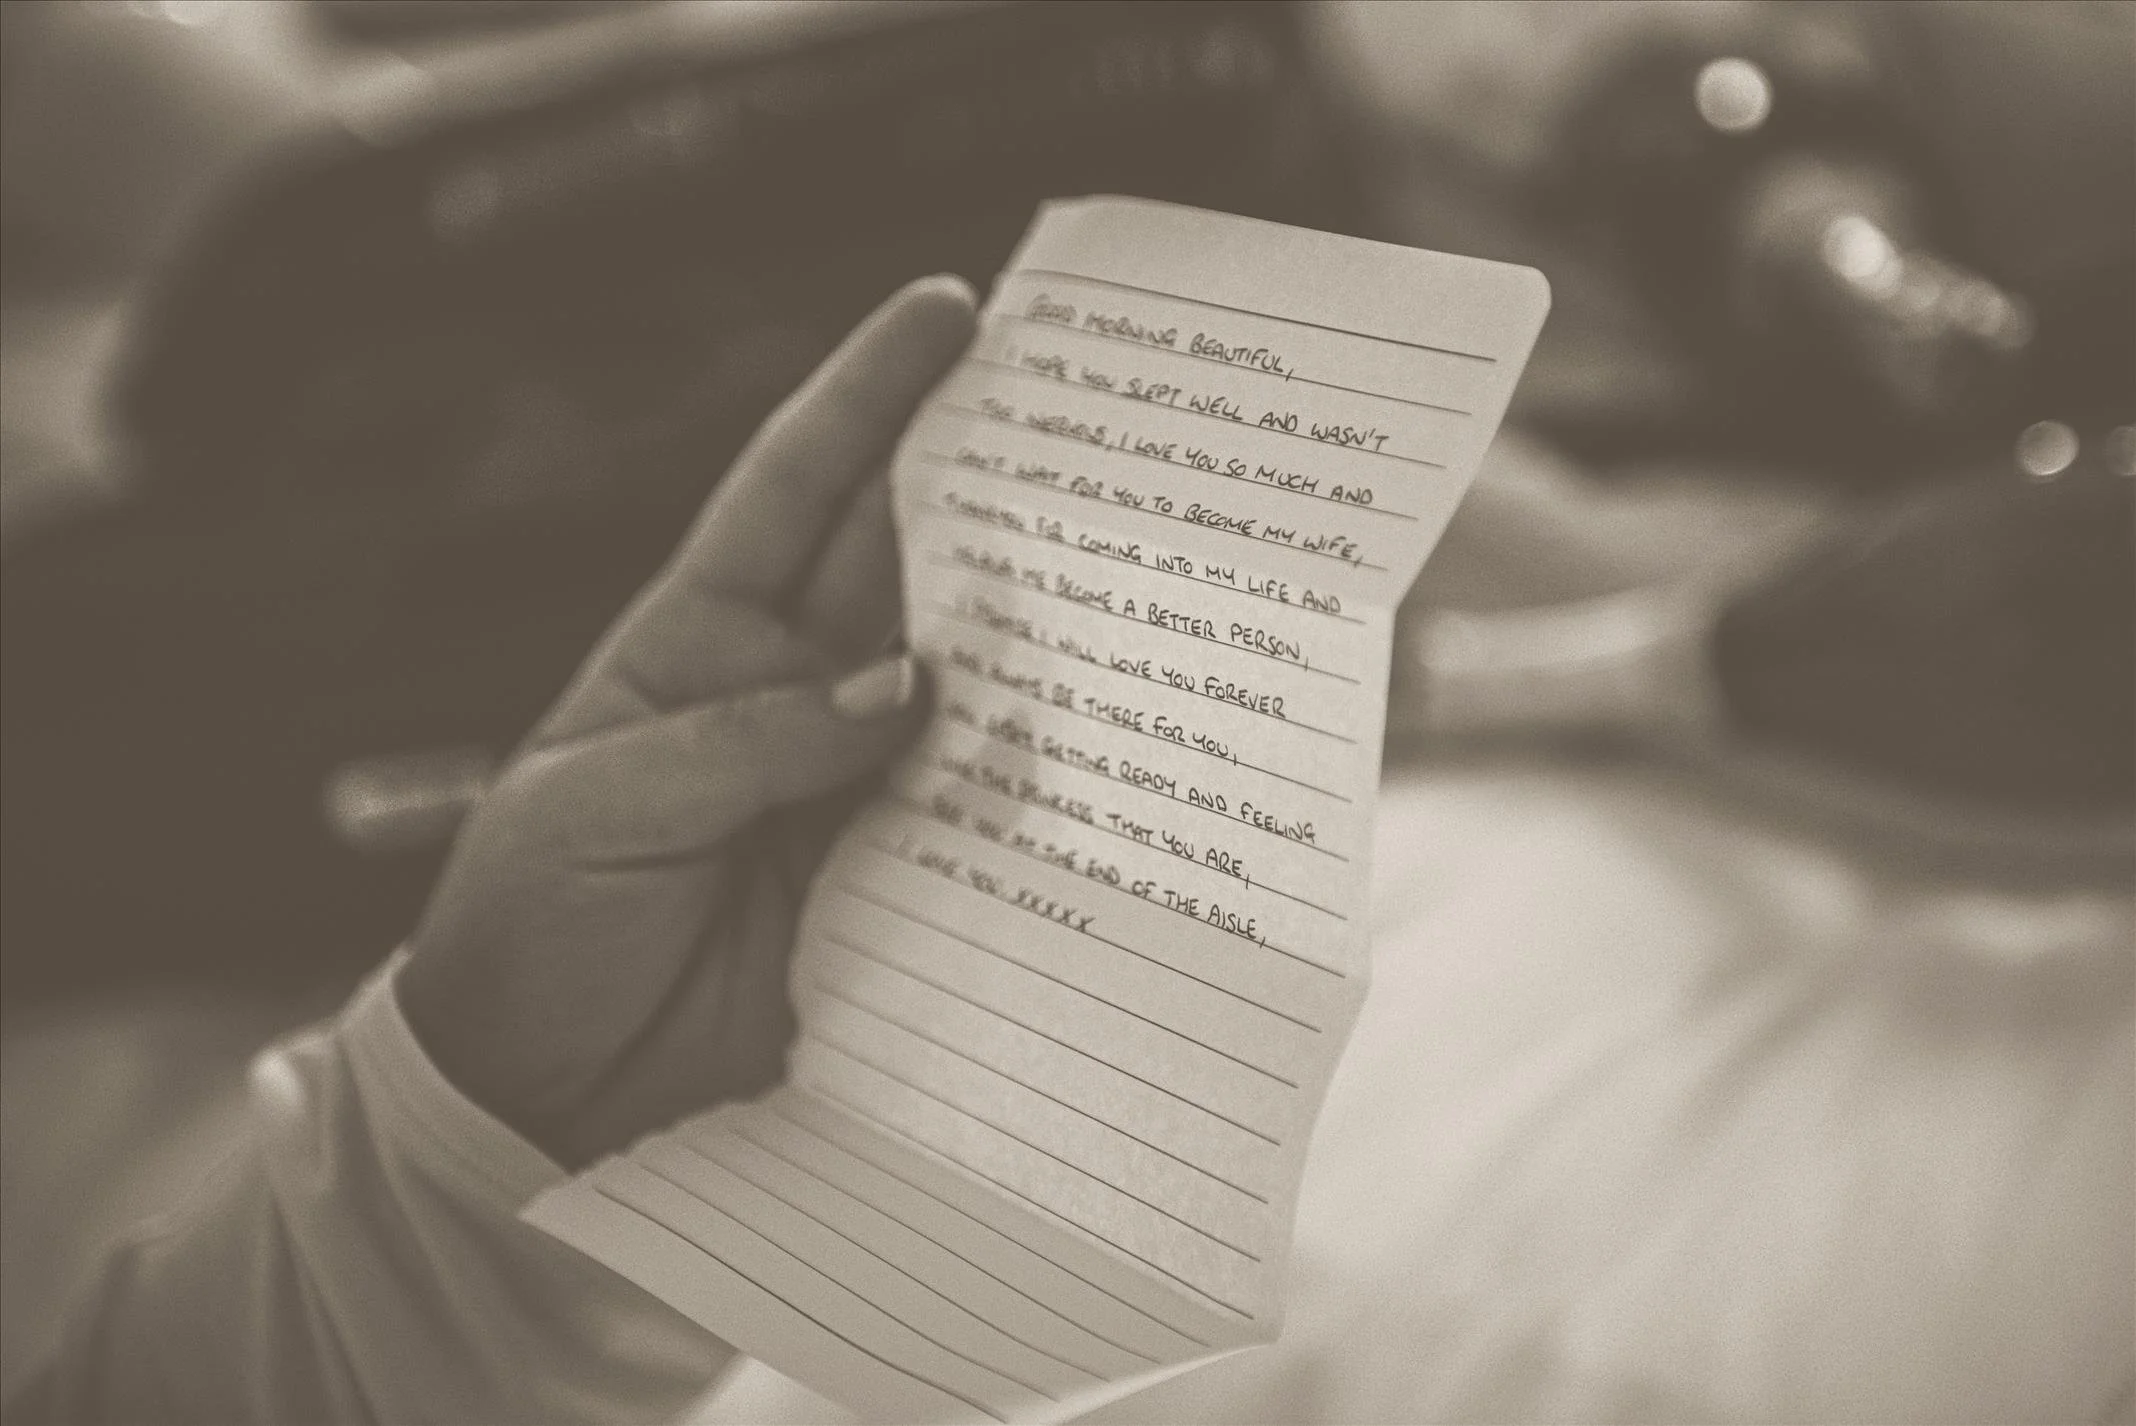 GOOD MORNING BEAUTIFUL,
I HOPE YOU SLEPT WELL AND WASN'T
TOO NERVOUS, I LOVE YOU SO MUCH AND
CAN'T WAIT FOR YOU TO BECOME MY WIFE,
FOR COMING INTO MY LIFE AND
HELPING ME BECOME A BETTER PERSON,
I PROMISE I WILL LOVE YOU FOREVER
AND ALWAYS BE THERE FOR YOU,
GETTING READY AND FEELING
LIKE THE PRINCESS THAT YOU ARE,
SEE YOU AT THE END OF THE AISLE,
I LOVE YOU XXXXX